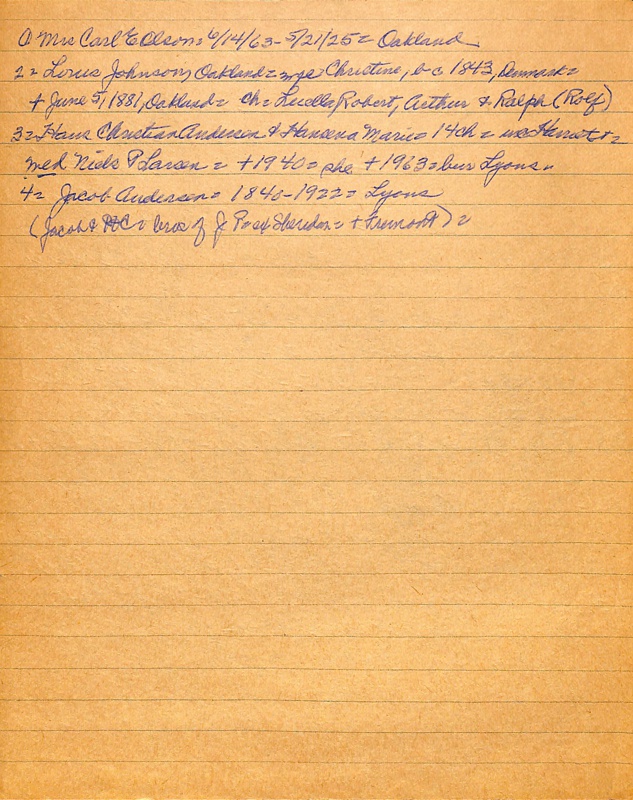 ① Mrs Carl E Olson = 6/14/63 - 5/21/25 = Oakland
2 = Louis Johnson, Oakland = mrs Christine, b c 1843, Denmark =
+ June 5, 1881, Oakland = ch = Luella, Robert, Arthur & Ralph (Rolf)
3 = Hans Christian Andersen & Hansena Marie = 14 ch = Harriet =
med Niels P Larsen = +1940 = she +1963 = bur Lyons =
4 = Jacob Andersen = 1840-1922 = Lyons
(Jacob & HC = bros of J P of Sheridan = + Fremont) =